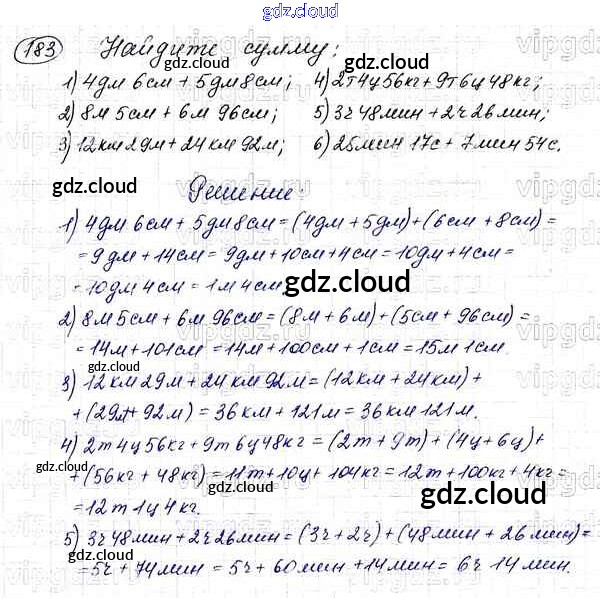 gdz.cloud
183 Найдите сумму:
1) 4дм 6см + 5дм 8см; 4) 2т 4ц 56кг + 9т 6ц 48кг;
2) 8м 5см + 6м 96см; 5) 3ч 48мин + 2ч 26мин;
3) 12км 29м + 24км 92м; 6) 25мин 17с + 7мин 54с.
Решение:
1) 4дм 6см + 5дм 8см = (4дм + 5дм) + (6см + 8см) =
= 9дм + 14см = 9дм + 10см + 4см = 10дм + 4см =
= 10дм 4см = 1м 4см
2) 8м 5см + 6м 96см = (8м + 6м) + (5см + 96см) =
= 14м + 101см = 14м + 100см + 1см = 15м 1см.
3) 12км 29м + 24км 92м = (12км + 24км) +
+ (29м + 92м) = 36км + 121м = 36км 121м.
4) 2т 4ц 56кг + 9т 6ц 48кг = (2т + 9т) + (4ц + 6ц) +
+ (56кг + 48кг) = 11т + 10ц + 104кг = 12т + 100кг + 4кг =
= 12т 1ц 4кг.
5) 3ч 48мин + 2ч 26мин = (3ч + 2ч) + (48мин + 26мин) =
= 5ч + 74мин = 5ч + 60мин + 14мин = 6ч 14мин.